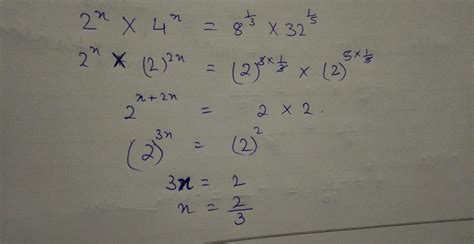 2ⁿ × 4ⁿ = 8^{1/3} × 32^{1/5}
2ⁿ × (2)^{2n} = (2)^{3×1/3} × (2)^{5×1/5}
2^{n+2n} = 2 × 2.
(2)^{3n} = (2)²
3n = 2
n = 2/3